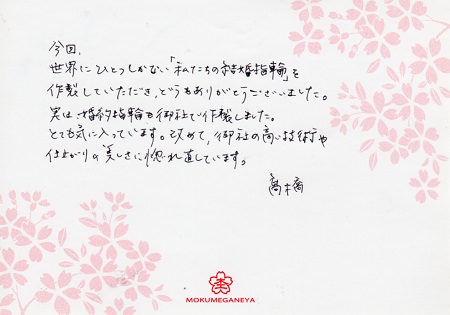 今回、
世界にひとつしかない「私たちの結婚指輪」を
作製していただき、どうもありがとうございました。
実は、婚約指輪も御社で作製しました。
とても気に入っています。改めて、御社の高い技術や
仕上がりの美しさに惚れ直しています。
髙橋
MOKUMEGANEYA